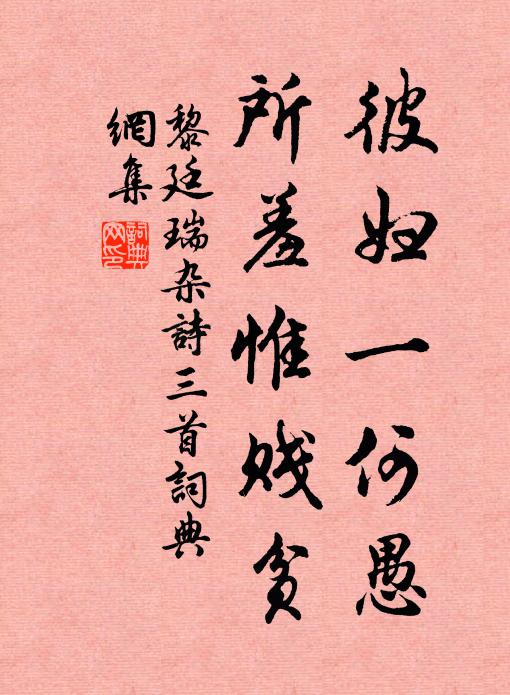 彼妇一何愚
所羞惟贱贫
黎廷瑞杂詩三首詞典
網集
詞典网印